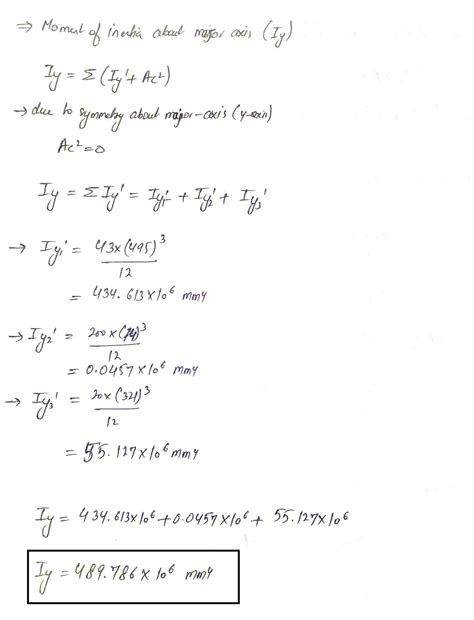 ⇒ Moment of inertia about major axis (Iy)
Iy = Σ (Iy' + Ac²)
→ due to symmetry about major-axis (y-axis)
Ac² = 0
Iy = Σ Iy' = Iy₁' + Iy₂' + Iy₃'
→ Iy₁' = 43×(495)³ / 12
= 434.613×10⁶ mm4
→ Iy₂' = 200×(14)³ / 12
= 0.0457×10⁶ mm4
→ Iy₃' = 20×(321)³ / 12
= 55.127×10⁶ mm4
Iy = 434.613×10⁶ + 0.0457×10⁶ + 55.127×10⁶
Iy = 489.786×10⁶ mm4